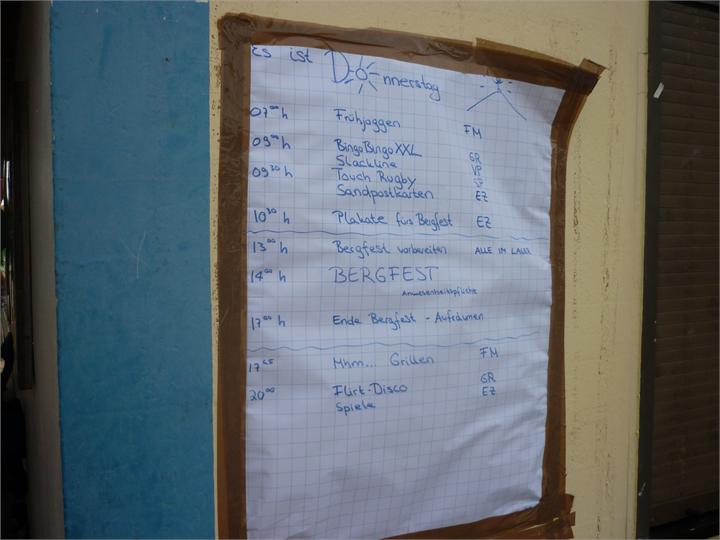 Es ist Donnerstag
07⁰⁰ h Frühjoggen FM
09⁰⁰ h BingoBingo XXL GR
Slackline VP
09³⁰ h Touch Rugby SP
Sandpostkarten EZ
10³⁰ h Plakate fürs Bergfest EZ
13⁰⁰ h Bergfest vorbereiten ALLE IM LAGER
14⁰⁰ h BERGFEST
Anwesenheitspflicht
17⁰⁰ h Ende Bergfest - Aufräumen
17⁴⁵ Mhm... Grillen FM
20⁰⁰ Flirt-Disco GR
Spiele EZ